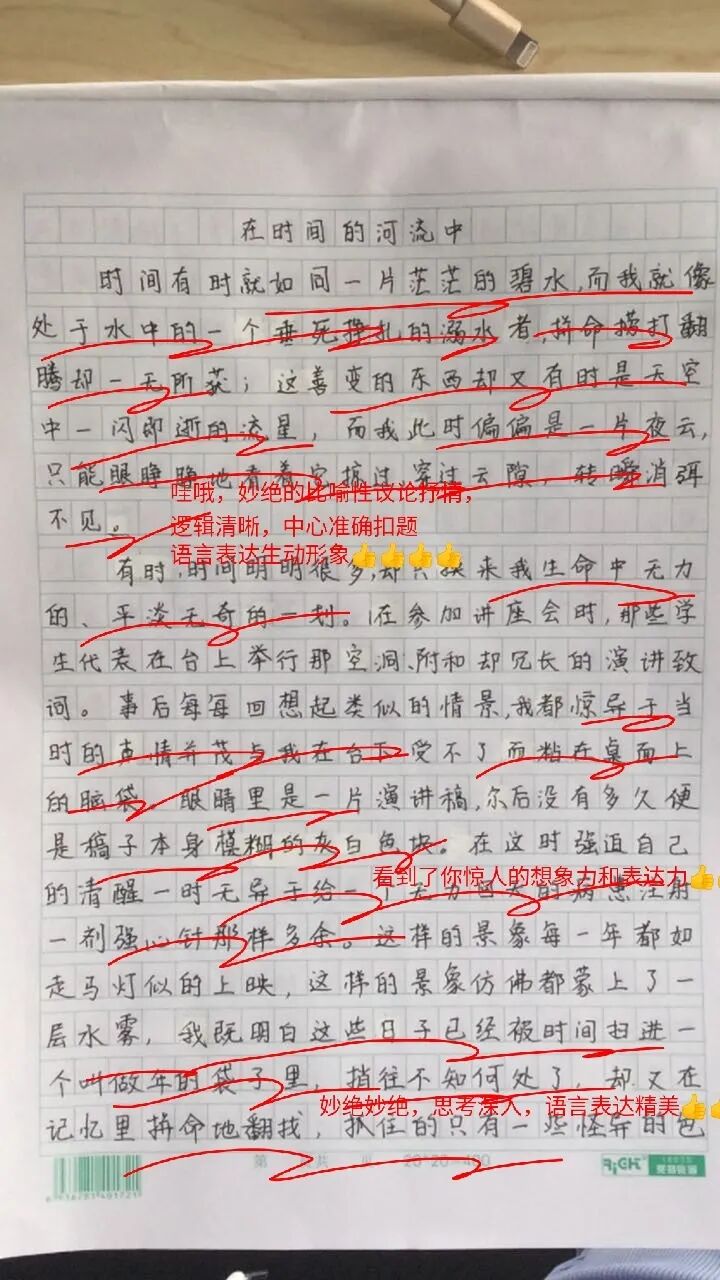 在时间的河流中
时间有时就如同一片茫茫的碧水,而我就像
处于水中的一个垂死挣扎的溺水者,拼命捞打翻
腾却一无所获；这善变的东西却又有时是天空
中一闪即逝的流星，而我此时偏偏是一片夜云,
只能眼睁睁地看着它掠过 穿过云隙，转瞬消弭
哇哦，妙绝的比喻性议论抒情，
不见。
逻辑清晰，中心准确扣题
语言表达生动形象👍👍👍👍
有时,时间明明很多,却只换来我生命中无力
的、平淡无奇的一划。在参加讲座会时,那些学
生代表在台上举行那空洞、附和却冗长的演讲致
词。事后每每回想起类似的情景,我都惊异于当
时的声情并茂与我在台下受不了而粘在桌面上
的脑袋。眼睛里是一片演讲稿,尔后没有多久便
是稿子本身模糊的灰白色块。在这时强迫自己
看到了你惊人的想象力和表达力👍👍
的清醒一时无异于给一个无力回天的病患注射
一剂强心针那样多余。这样的景象每一年都如
走马灯似的上映，这样的景象仿佛都蒙上了一
层水雾，我既明白这些日子已经被时间扫进一
个叫做年的袋子里，捎往不知何处了，却又在
妙绝妙绝，思考深入，语言表达精美👍👍
记忆里拼命地翻找，抓住的只有一些怪异的色
第 页共 页 20*20=400
RiGHT
6916781401721